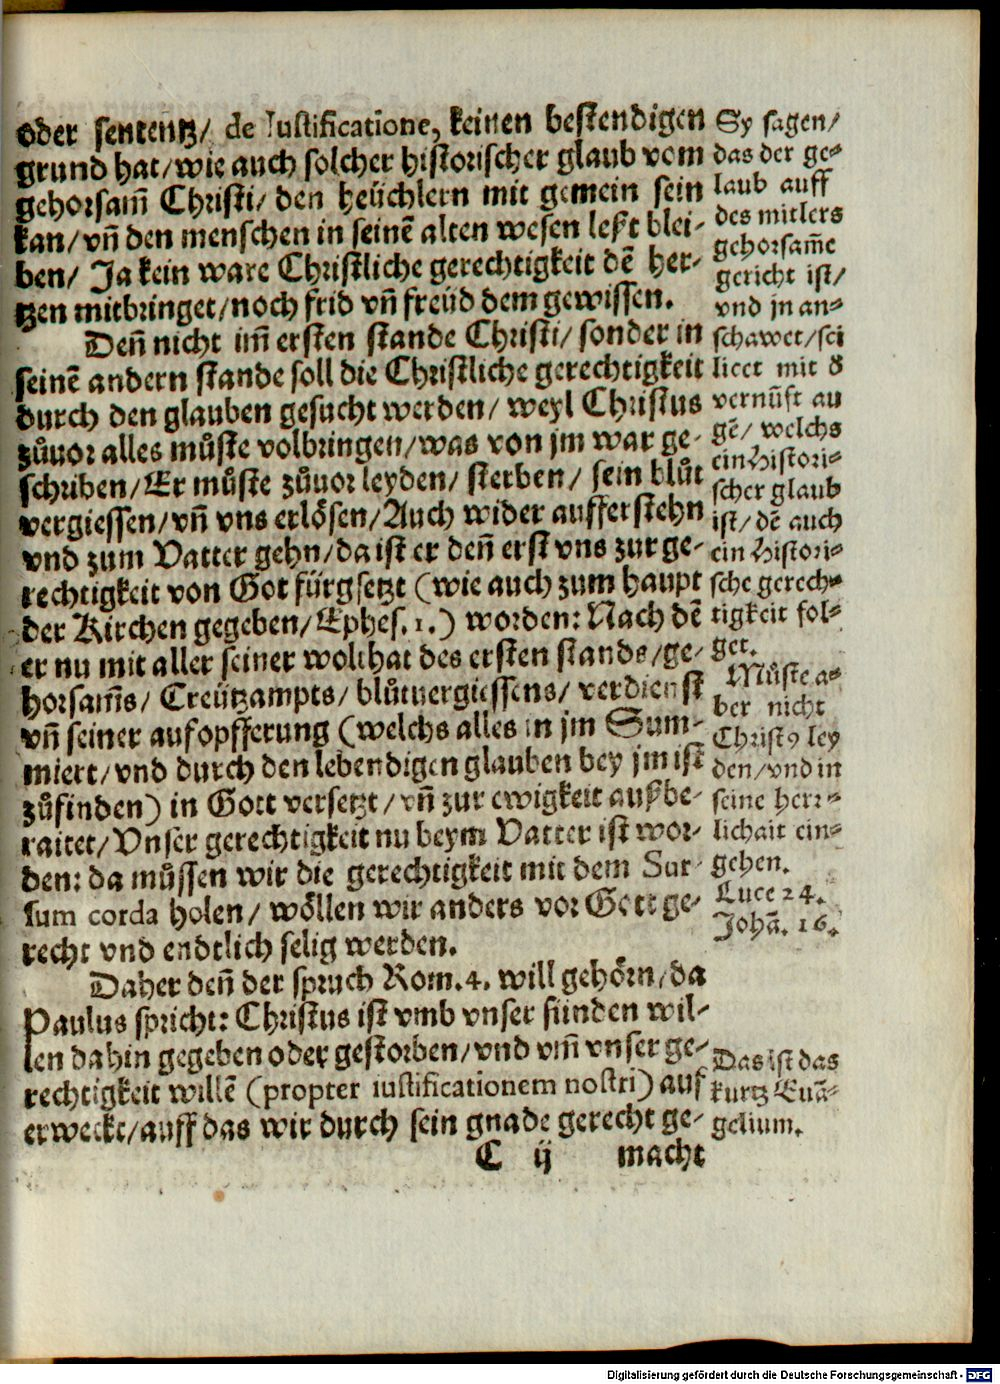 oder sententz/ de Iustificatione, keinen bestendigen
grund hat/wie auch solcher historischer glaub vom
gehorsam̃ Christi/ den heüchlern mit gemein sein
kan/vñ den menschen in seinẽ alten wesen leßt blei-
ben/ Ja kein ware Christliche gerechtigkeit dẽ her-
tzen mitbringet/noch frid vñ freüd dem gewissen.
Deñ nicht im̃ ersten stande Christi/ sonder in
seinẽ andern stande soll die Christliche gerechtigkeit
durch den glauben gesucht werden/ weyl Christus
zůuor alles můste volbringen/was von jm war ge-
schriben/Er můste zůuor leyden/ sterben/ sein blůt
vergiessen/vñ vns erlösen/Auch wider aufferstehn
vnd zum Vatter gehn/da ist er deñ erst vns zur ge-
rechtigkeit von Got fürgsetzt (wie auch zum haupt
der Kirchen gegeben/Ephes. 1.) worden: Nach dẽ
er nu mit aller seiner wolthat des ersten stands/ge-
horsam̃s/ Creützampts/ blůtuergiessens/ verdienst
vñ seiner aufopfferung (welchs alles in jm Sum-
miert/vnd durch den lebendigen glauben bey jm ist
zůfinden) in Gott versetzt/vñ zur ewigkeit außbe-
raitet/Vnser gerechtigkeit nu beym Vatter ist wor-
den: da můssen wir die gerechtigkeit mit dem Sur-
sum corda holen/ wöllen wir anders vor Gott ge-
recht vnd endtlich selig werden.
Daher deñ der spruch Rom. 4. will gehörn/da
Paulus spricht: Christus ist vmb vnser sünden wil-
len dahin gegeben oder gestorben/vnd vm̃ vnser ge-
rechtigkeit willẽ (propter iustificationem nostri) auf
erweckt/auff das wir durch sein gnade gerecht ge-
C ij macht
Sy sagen/
das der ge-
laub auff
des mitlers
gehorsam̃e
gericht ist/
vnd jn an-
schawet/sci
licet mit ð
vernũft au
gẽ/ welchs
ein Histori-
scher glaub
ist/ dẽ auch
ein Histori-
sche gerech-
tigkeit fol-
get.
Můste a-
ber nicht
Christꝰ ley
den/vnd in
seine herr-
lichait ein-
gehen.
Luce 24.
Johã. 16.
Das ist das
kurtz Euã-
gelium.
Digitalisierung gefördert durch die Deutsche Forschungsgemeinschaft - DFG